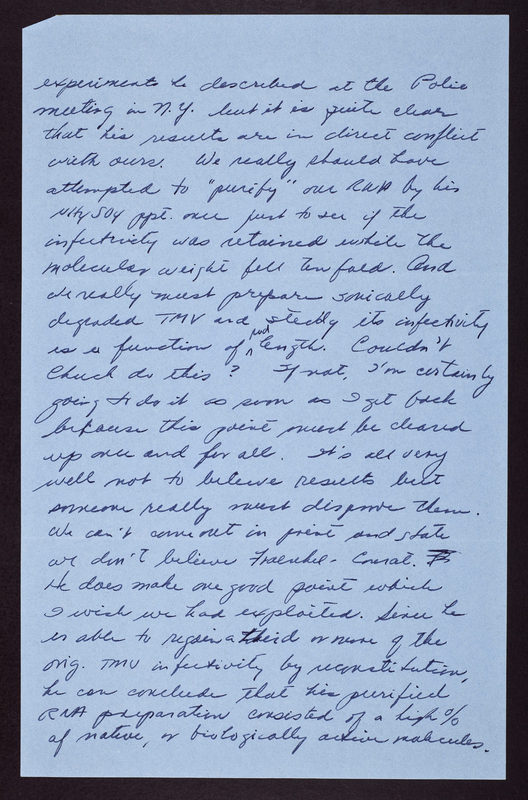 experiments he described at the Polio
meeting in N.Y. but it is quite clear
that his results are in direct conflict
with ours. We really should have
attempted to "purify" our RNA by his
NH4SO4 ppt. once just to see if the
infectivity was retained while the
molecular weight fell ten fold. And
we really must prepare sonically
degraded TMV and study its infectivity
as a function of rod length. Couldn't
Chuck do this? If not, I'm certainly
going to do it as soon as I get back
because this point must be cleared
up once and for all. It's all very
well not to believe results but
someone really must disprove them.
We can't come out in print and state
we don't believe Fraenkel-Conrat.
He does make one good point which
I wish we had exploited. Since he
is able to regain a third or more of the
orig. TMV infectivity by reconstitution,
he can conclude that his purified
RNA preparation consisted of a high %
of native, or biologically active molecules.